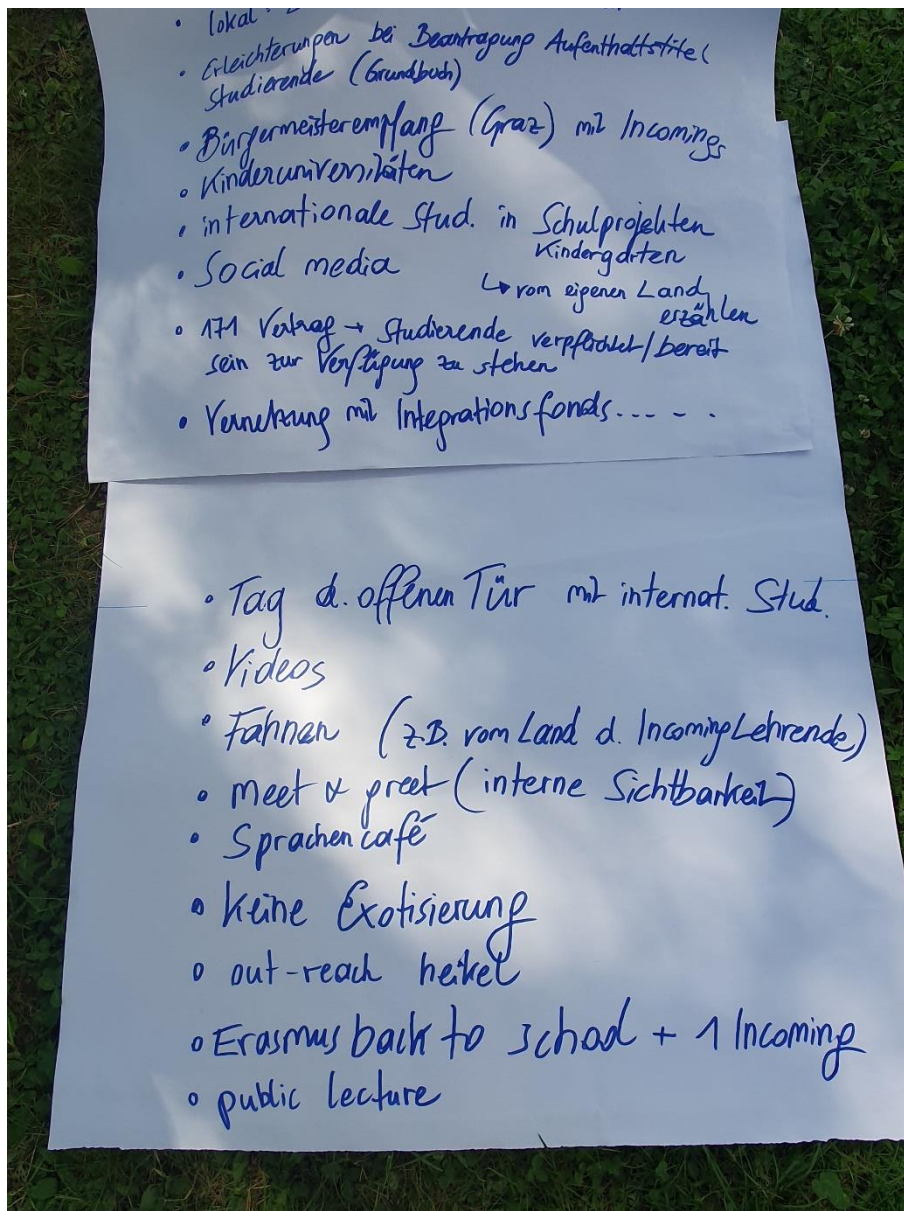 • lokal
• Erleichterungen bei Beantragung Aufenthaltstitel
Studierende (Grundbuch)
• Bürgermeisterempfang (Graz) mit Incomings
• Kinderuniversitäten
• internationale Stud. in Schulprojekten
Kindergärten
• Social media
↳ vom eigenen Land
erzählen
• 171 Vertrag → Studierende verpflichtet/bereit
sein zur Verfügung zu stehen
• Vernetzung mit Integrationsfonds.....
• Tag d. offenen Tür mit internat. Stud.
• Videos
• Fahnen (z.B. vom Land d. Incoming Lehrende)
• meet & greet (interne Sichtbarkeit)
• Sprachencafé
• keine Exotisierung
• out-reach heikel
• Erasmus back to school + 1 Incoming
• public lecture